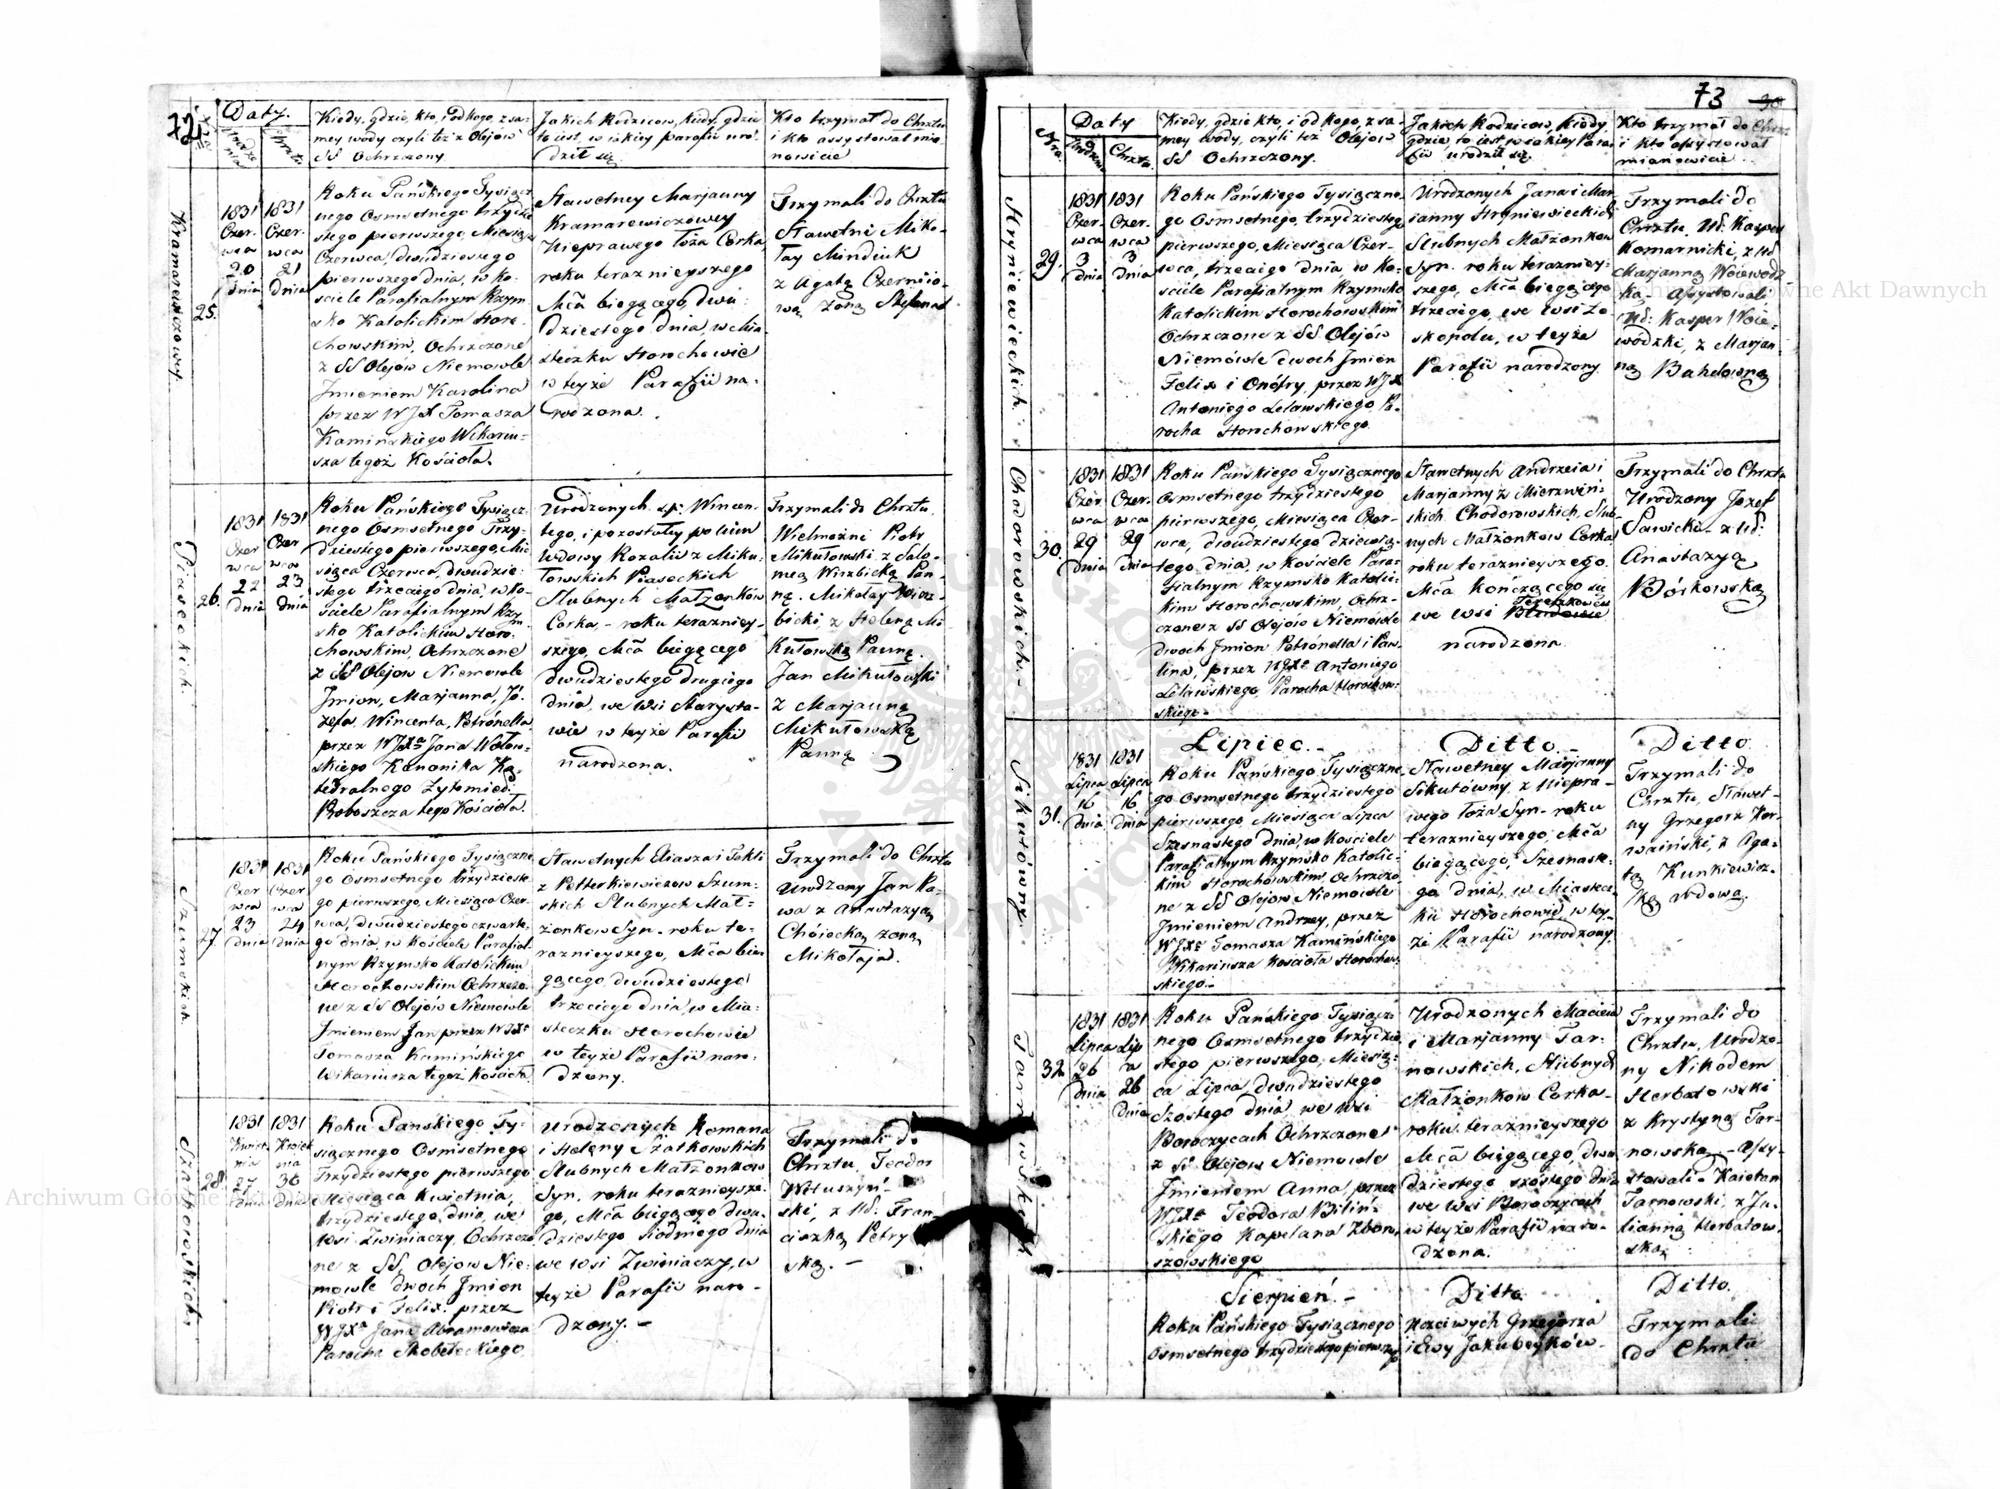 72.
Daty.
Kiedy, gdzie, kto, i od kogo, z sa=
mey wody czyli też z Olejów
SS Ochrzczony
Jakich Rodzicow, kiedy, gdzie
to iest, w iakiey parafii uro=
dził się
Kto trzymał do Chrztu
i kto assystował mia=
nowicie
Kramarewiczowny.
25.
1831
Czer-
wca
20
dnia
1831
Czer-
wca
21
dnia
Roku Pańskiego Tysiącz=
nego Osmsetnego trzydzie
stego pierwszego, Miesiąca
Czerwca, dwudziestego
pierwszego dnia, w Ko=
ściele Parafialnym Rzym
sko Katolickim Horo=
chowskim, Ochrzczone
z SS Olejów Niemowle
Jmieniem Karolina
przez WJX Tomasza
Kamińskiego Wikariu=
sza tegoż Kościoła.
Sławetney Marjanny
Kramarewiczowey
Nieprawego Łoża Corka
roku teraznieyszego
Mca biegącego, dwu=
dziestego dnia, w Mia=
steczku Horochowie
w teyże Parafii na=
rodzona.
Trzymali do Chrztu
Sławetni Miko=
łay Mindiuk
z Agatą Czernio=
wą żoną Stefana
Piaseckich.
26.
1831
Czer
wca
22
dnia
1831
Czer
wca
23
dnia
Roku Pańskiego Tysiącz=
nego Osmsetnego Trzy=
dziestego pierwszego, Mie
siąca Czerwca, dwudzie=
stego trzeciego dnia, w Ko=
ściele Parafialnym Rzym=
sko Katolickim Horo=
chowskim, Ochrzczone
z SS Olejow Niemowle
Jmion, Marjanna, Jó=
zefa, Wincenta, Petronella,
przez WJXa Jana Wołow=
skiego Kanonika Ka=
tedralnego Żytomier:
Proboszcza tego Kościoła.
Urodzonych śp: Wincen=
tego, i pozostałey po nim
Wdowy Rozalii z Miku=
łowskich Piaseckich
Slubnych Małżonków
Corka, roku terazniey=
szego, Mca biegącego
dwudziestego drugiego
dnia, we Wsi Starysta=
wie w teyże Parafii
narodzona.
Trzymali do Chrztu.
Wielmożni Piotr
Mikułowski z Salo=
meą Wirzbicką Pan=
ną. Mikołay Wierz=
bicki, z Heleną Mi=
kułowską Panną.
Jan Mikułowski
z Marjanną
Mikułowską
Panną
Szumskich
27.
1831
Czer
wca
23
dnia
1831
Czer
wca
24
dnia
Roku Pańskiego Tysiączne
go Osmsetnego trzydzieste
go pierwszego, Miesiąca Czer=
wca, dwudziestego czwarte=
go dnia, w Kościele Parafial=
nym Rzymsko Katolickim
Horochowskim Ochrzczo=
ne z SS Olejów Niemowle
Jmieniem Jan przez WJXa
Tomasza Kamińskiego
Wikariusza tegoż Kościoła.
Sławetnych Eliasza i Tekli
z Petterkiewiczow Szum=
skich Slubnych Mał=
żonkow Syn. roku te=
raznieyszego, Mca bie=
gącego, dwudziestego
trzeciego dnia, w Mia=
steczku Horochowie
w teyże Parafii naro=
dzony.
Trzymali do Chrztu
Urodzony Jan Pa=
wa z Anastazyą
Chóiecką żoną
Mikołaja.
Szatkowskich
28.
1831
Kwiet
nia
27
dnia
1831
Kwiet
nia
30
dnia
Roku Pańskiego Ty=
siącznego Osmsetnego
Trzydziestego pierwszego
Miesiąca Kwietnia,
trzydziestego dnia, we
Wsi Zwiniaczy, Ochrzczo
ne z SS Olejow Nie=
mowle dwoch Jmion
Piotr i Felix. przez
WJXa Jana Abramowicza
Parocha Skobełeckiego
Urodzonych Romana
i Heleny Szatkowskich
Slubnych Małżonkow
Syn. roku teraznieysze=
go, Mca biegącego dwu=
dziestego siodmego dnia
we Wsi Zwiniaczy, w
teyże Parafii naro=
dzony.
Trzymali do
Chrztu, Teodor
Wituszyń=
ski, z Ur: Fran=
ciszką Petry
ską.
73
Nra.
Daty
Chrztu
Kiedy, gdzie kto, i od kogo, z sa=
mey wody, czyli też Olejow
SS Ochrzczony.
Jakich Rodzicow, kiedy,
gdzie, to iest w iakiey Para=
fii urodził się.
Kto trzymał do Chrztu
i kto assystował
mianowicie
Hryniewieckich
29.
1831
Czer-
wca
3
dnia
1831
Czer-
wca
3
dnia
Roku Pańskiego Tysiączne=
go Osmsetnego, trzydziestego
pierwszego, Miesiąca Czer=
wca, trzeciego dnia, w Ko=
ściele Parafialnym Rzymsko
Katolickim Horochowskim
Ochrzczone z SS Olejów
Niemowle dwoch Jmion
Felix i Onófry, przez WJX
Antoniego Lelawskiego, Pa=
rocha Horochowskiego.
Urodzonych Jana i Mar=
janny Hryniewieckich
Slubnych Małżonkow
Syn. roku teraźniey=
szego, Mca biegącego
trzeciego, we Wsi Ło=
skopolu, w teyże
Parafii narodzony
Trzymali do
Chrztu, Ur. Kasper
Komarnicki, z Ur
Marjanną Wóiewodz
ką. Assystowali
Ur: Kasper Woie=
wódzki, z Marjan=
ną Bahdową
Chodorowskich
30.
1831
Czer
wca
29
dnia
1831
Czer-
wca
29
dnia
Roku Pańskiego Tysiącznego
Osmsetnego trzydziestego
pierwszego, Miesiąca Czer=
wca, dwudziestego dziewią=
tego dnia, w Kościele Para=
fialnym Rzymsko Katolic=
kim Horochowskim, Ochrz=
czone z SS Olejów Niemowle
dwoch Jmion Petrónella i Paw=
lina, przez WJXa Antoniego
Lelawskiego, Parocha Horochow=
skiego.
Sławetnych Andrzeia i
Marjanny z Mierzwiń=
skich Chodorowskich, Slub=
nych Małżonkow Corka
roku teraznieyszego.
Mca kończącego się
we Wsi
narodzona
Trzymali do Chrztu
Urodzony Jozef
Sawicki z Ur.
Anastazyą
Bórkowską
Sikutówny.
31.
1831
Lipca
16
dnia
1831
Lipca
16
dnia
Lipiec.
Roku Pańskiego Tysiączne
go Osmsetnego trzydziestego
pierwszego, Miesiąca Lipca
Szesnastego dnia, w Kościele
Parafialnym Rzymsko Katolic=
kim Horochowskim, Ochrzczo
ne z SS Olejów Niemowle
Jmieniem Andrzey, przez
WJXa Tomasza Kamińskiego
Wikariusza Kościoła Horochow=
skiego.
Ditto.
Sławetney Marjanny
Sikutówny, z niepra=
wego Łoża Syn. roku
teraznieyszego, Mca
biegącego, Szesnaste=
go dnia, w Miastecz=
ku Horochowie, w tey=
że Parafii narodzony.
Ditto
Trzymali do
Chrztu, Sławet=
ny Grzegorz Kor=
waiński, z Aga=
tą Kunkiewicz=
ką wdową.
32.
1831
Lipca
26
dnia
1831
Lip
ca
26
dnia
Roku Pańskiego Tysiącz=
nego Osmsetnego trzydzie
stego pierwszego, Miesią=
ca Lipca, dwudziestego
Szostego dnia, we Wsi
Boroczycach Ochrzczone
z SS Olejow Niemowle
Jmieniem Anna, przez
WJXa Teodora Biliń=
skiego Kapelana Zbor=
szowskiego
Urodzonych Macieia
i Marjanny Tar=
nowskich, Slubnych
Małżonkow Corka
roku teraznieyszego
Mca biegącego, dwu=
dziestego szóstego dnia
we Wsi Boroczycach
w teyże Parafii naro=
dzona.
Trzymali do
Chrztu, Urodzo=
ny Nikodem
Herbatowski
z Krystyną Tar=
nowską. Assy=
stowali Kaietan
Tarnowski, z Ju=
lianną Herbatow=
ską
Sierpień.
Roku Pańskiego Tysiącznego
Osmsetnego trzydziestego pierwszego
Ditto
Uczciwych Grzegorza
i Ewy Jakubeyków
Ditto.
Trzymali
do Chrztu
Archiwum Główne Akt Dawnych
Archiwum Główne Akt Dawnych